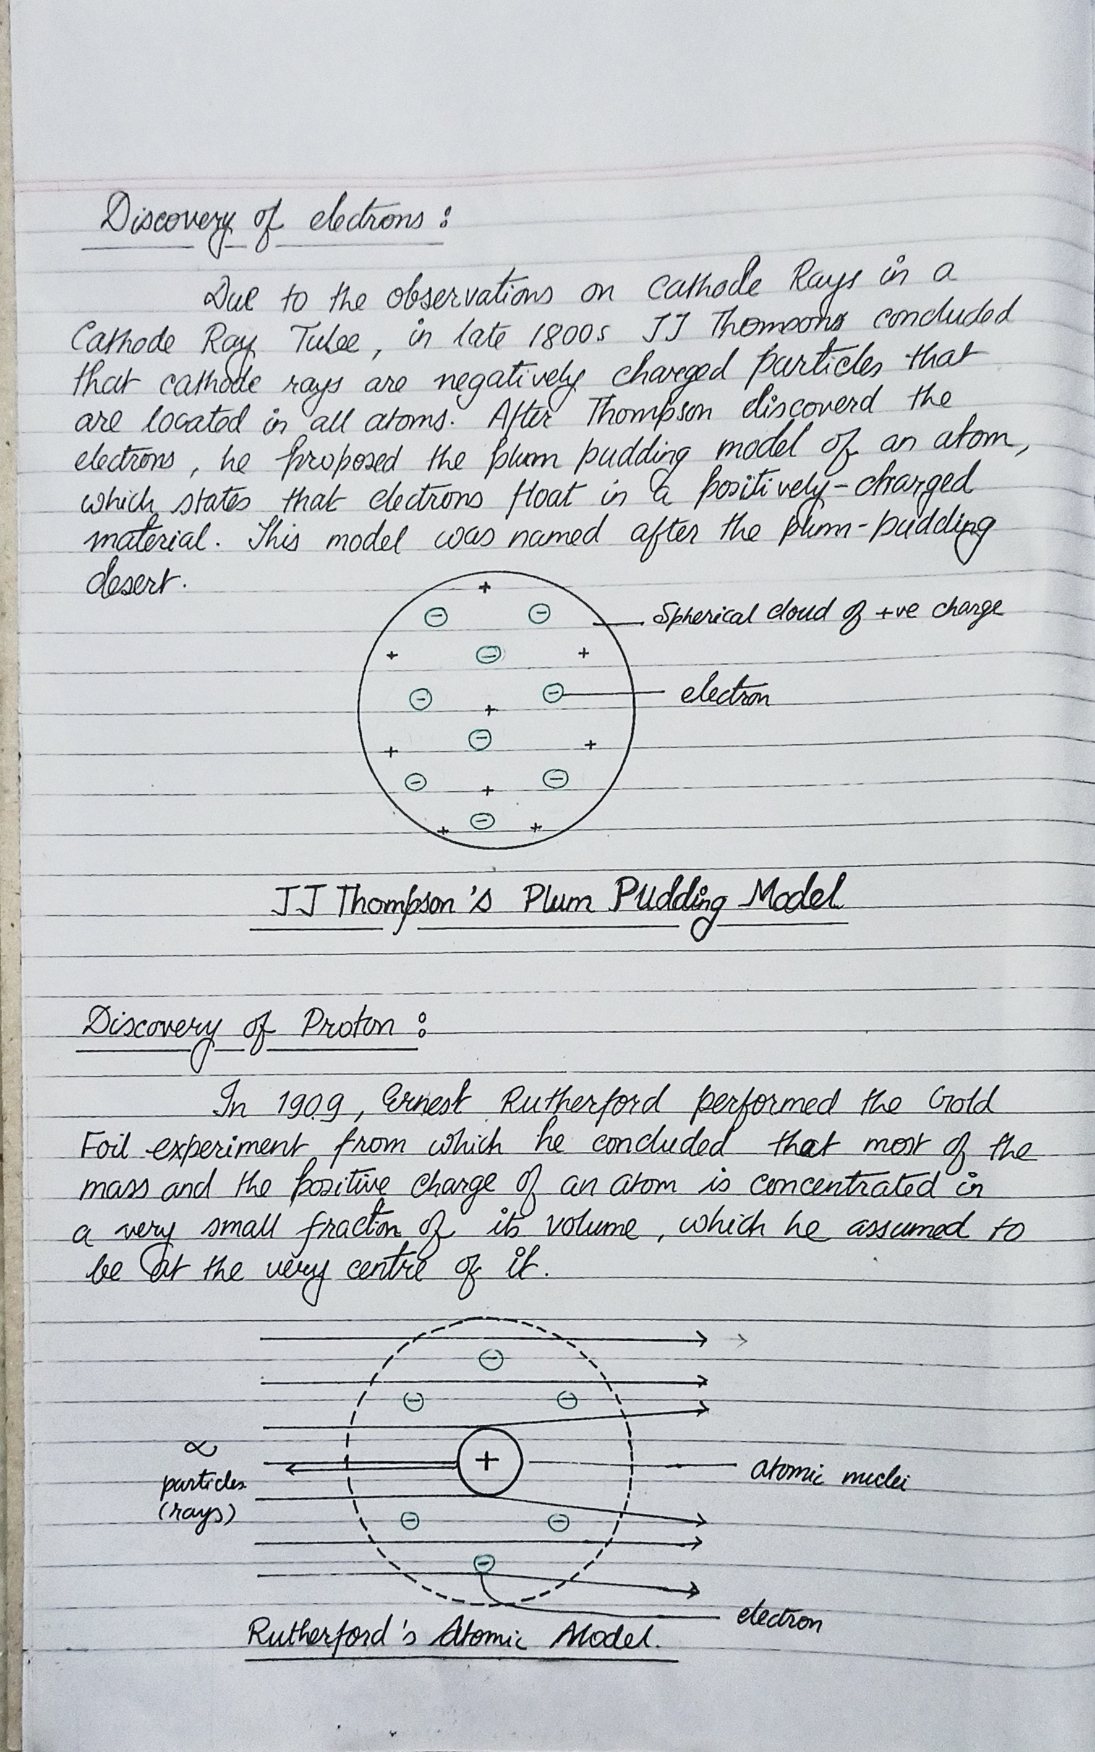 Discovery of electrons :
Due to the observations on Cathode Rays in a
Cathode Ray Tube, in late 1800s JJ Thomsons concluded
that cathode rays are negatively charged particles that
are located in all atoms. After Thompson discoverd the
electrons, he proposed the plum pudding model of an atom,
which states that electrons float in a positively-charged
material. This model was named after the plum-pudding
desert.
+
- -
Spherical cloud of +ve charge
+ - +
- -
electron
+
-
+ +
- -
+
-
+ +
JJ Thompson's Plum Pudding Model
Discovery of Proton :
In 1909, Ernest Rutherford performed the Gold
Foil experiment from which he concluded that most of the
mass and the positive charge of an atom is concentrated in
a very small fracton of its volume, which he assumed to
be at the very centre of it.
-
- -
∝
particles
(rays)
+
atomic nuclei
- -
-
electron
Rutherford's Atomic Model.